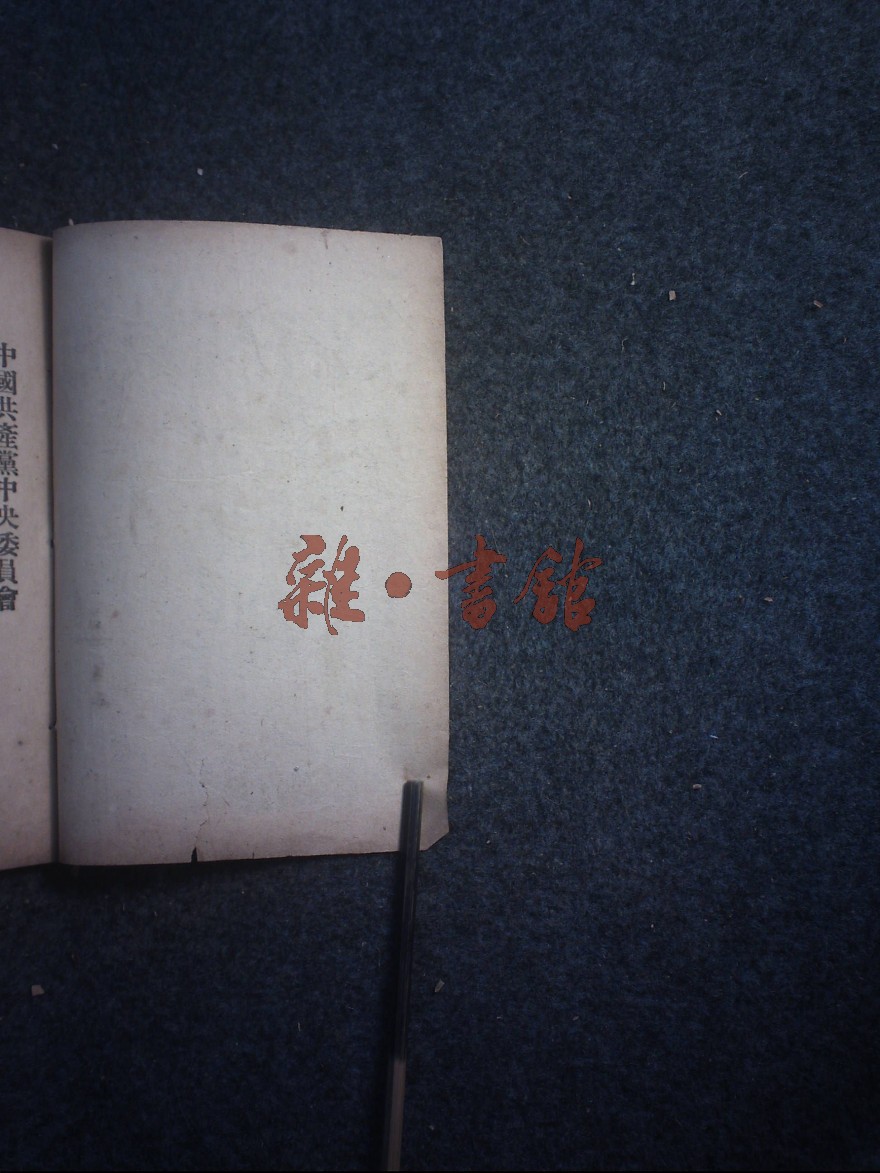 中國共產黨中央委員會
雜·書館